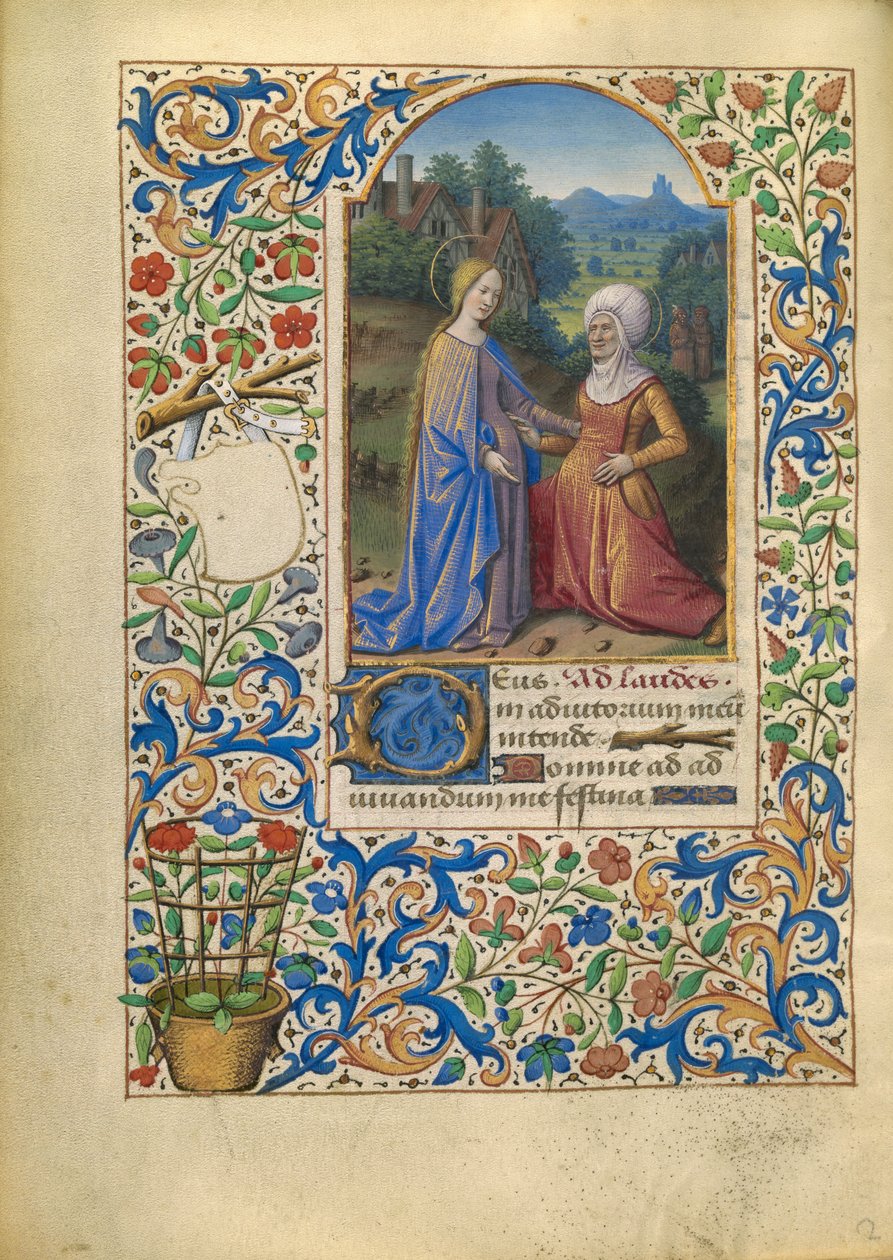 Deus. Ad laudes.
in adiutorium meū
intende.
Domine ad ad
iuuandum me festina
2